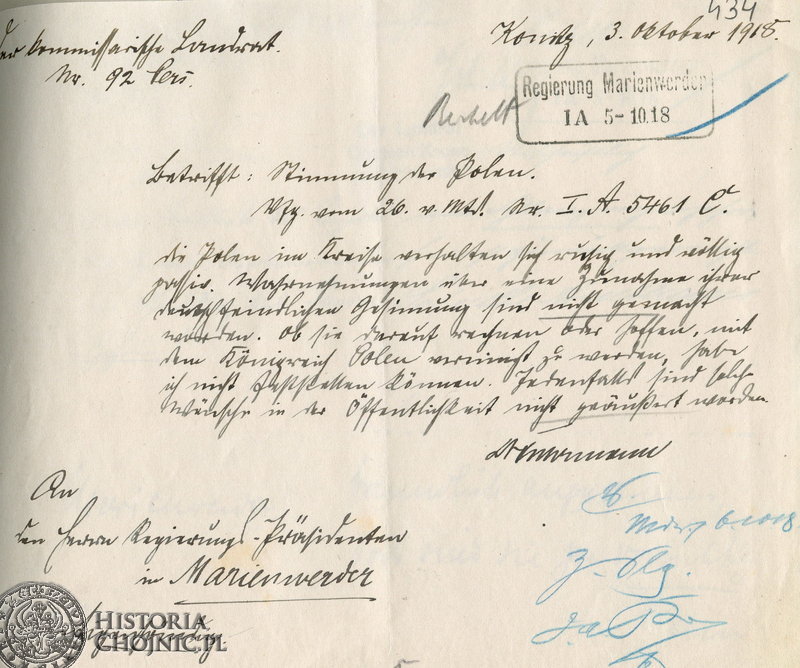 434
Der kommissarische Landrat.
Konitz, 3. Oktober 1918.
Nr. 92 Pers.
Regierung Marienwerder
IA 5-10.18
Betrifft: Stimmung der Polen.
Vfg. vom 26. v. Mts. Nr. I. A. 5461 C.
Die Polen im Kreise verhalten sich ruhig und völlig
passiv. Wahrnehmungen über eine Zunahme ihrer
deutschfeindlichen Gesinnung sind nicht gemacht
worden. Ob sie darauf rechnen oder hoffen, mit
dem Königreich Polen vereinigt zu werden, habe
ich nicht feststellen können. Jedenfalls sind solche
Wünsche in der Öffentlichkeit nicht geäußert worden.
An
den Herrn Regierungs-Präsidenten
in Marienwerder
HISTORIA
CHOJNIC.PL